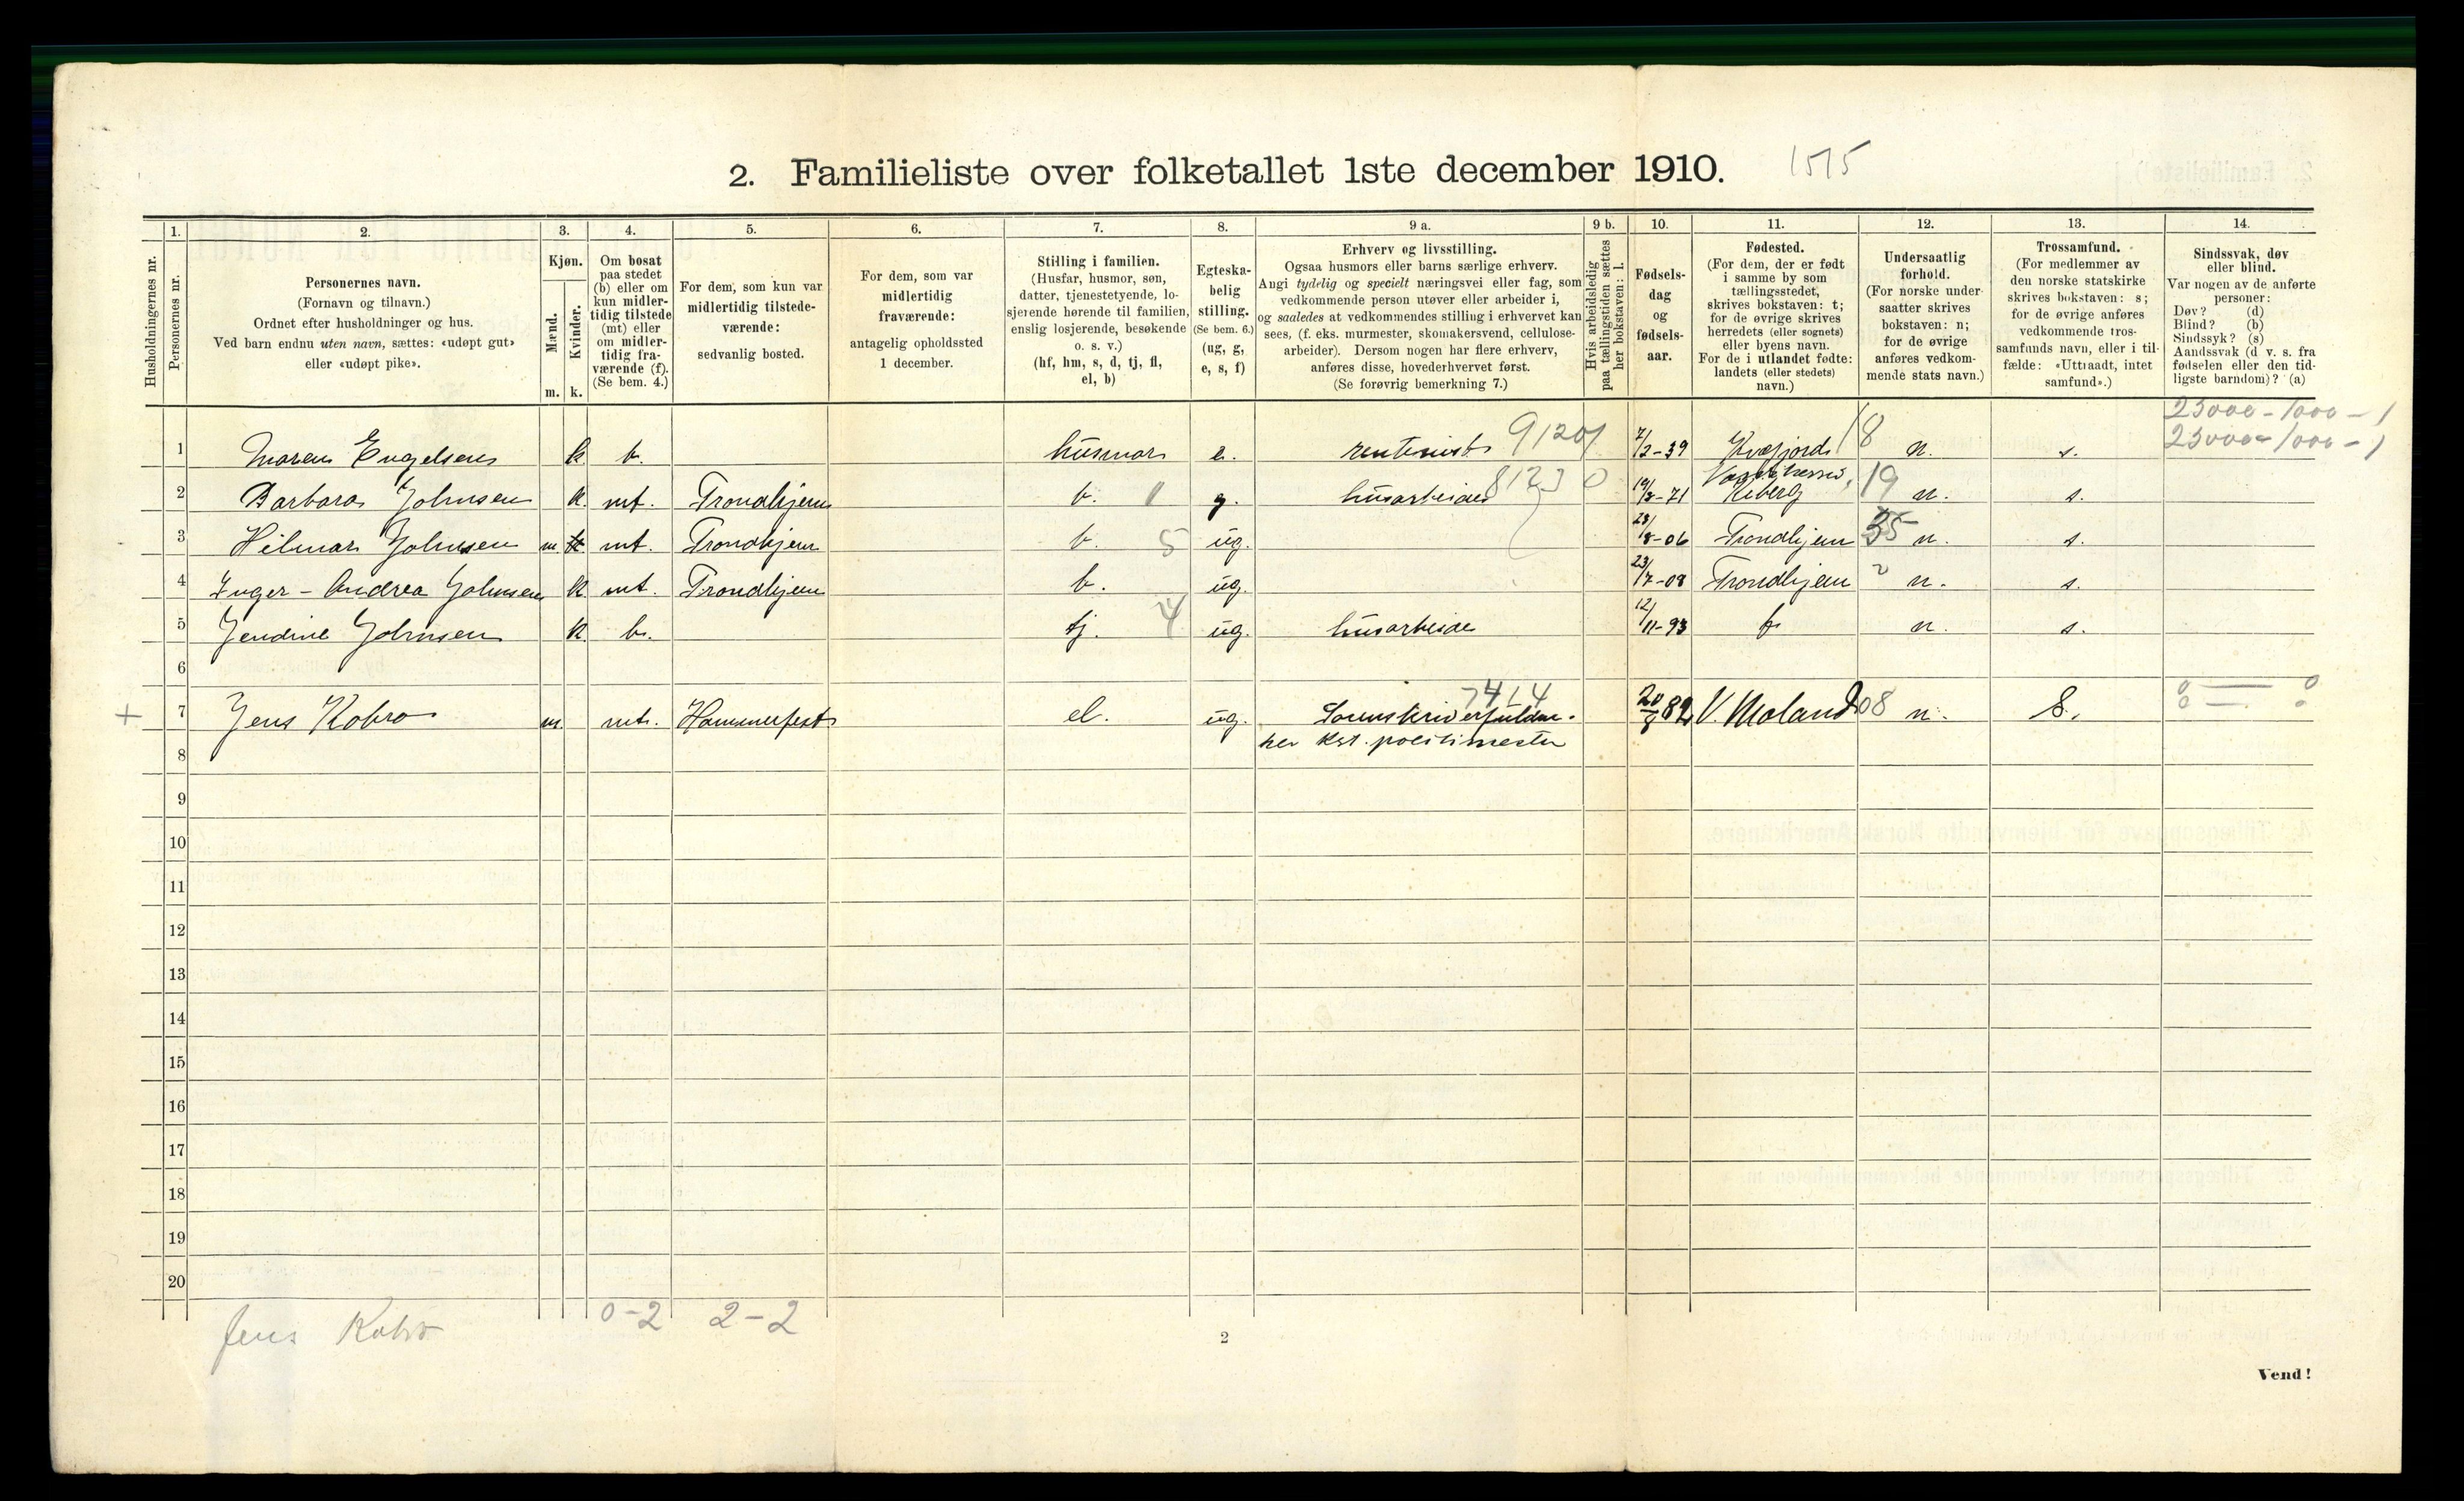 2. Familieliste over folketallet 1ste december 1910. 1515
1. 2. 3. 4. 5. 6. 7. 8. 9 a. 9 b. 10. 11. 12. 13. 14.
Husholdningernes nr.
Personernes nr.
Personernes navn.
(Fornavn og tilnavn.)
Ordnet efter husholdninger og hus.
Ved barn endnu uten navn, sættes: «udøpt gut»
eller «udøpt pike».
Kjøn.
Mænd.
Kvinder.
m. k.
Om bosat
paa stedet
(b) eller om
kun midler-
tidig tilstede
(mt) eller
om midler-
tidig fra-
værende (f).
(Se bem. 4.)
For dem, som kun var
midlertidig tilstede-
værende:
sedvanlig bosted.
For dem, som var
midlertidig
fraværende:
antagelig opholdssted
1 december.
Stilling i familien.
(Husfar, husmor, søn,
datter, tjenestetyende, lo-
sjerende hørende til familien,
enslig losjerende, besøkende
o. s. v.)
(hf, hm, s, d, tj, fl,
el, b)
Egteska-
belig
stilling.
(Se bem. 6.)
(ug, g,
e, s, f)
Erhverv og livsstilling.
Ogsaa husmors eller barns særlige erhverv.
Angi tydelig og specielt næringsvei eller fag, som
vedkommende person utøver eller arbeider i,
og saaledes at vedkommendes stilling i erhvervet kan
sees, (f. eks. murmester, skomakersvend, cellulose-
arbeider). Dersom nogen har flere erhverv,
anføres disse, hovederhvervet først.
(Se forøvrig bemerkning 7.)
Hvis arbeidsledig
paa tællingstiden sættes
her bokstaven: l.
Fødsels-
dag
og
fødsels-
aar.
Fødested.
(For dem, der er født
i samme by som
tællingsstedet,
skrives bokstaven: t;
for de øvrige skrives
herredets (eller sognets)
eller byens navn.
For de i utlandet fødte:
landets (eller stedets)
navn.)
Undersaatlig
forhold.
(For norske under-
saatter skrives
bokstaven: n;
for de øvrige
anføres vedkom-
mende stats navn.)
Trossamfund.
(For medlemmer av
den norske statskirke
skrives bokstaven: s;
for de øvrige anføres
vedkommende tros-
samfunds navn, eller i til-
fælde: «Uttraadt, intet
samfund».)
Sindssvak, døv
eller blind.
Var nogen av de anførte
personer:
Døv? (d)
Blind? (b)
Sindssyk? (s)
Aandssvak (d v. s. fra
fødselen eller den tid-
ligste barndom)? (a)
23000 - 1000 - 1
1 Maren Engelsen k b. husmor e. rentenist 9120 7/2-39 Kvæfjord 18 n. s. 23000 - 1000 - 1
2 Barbara Johnsen k. mt. Trondhjem b. g. husarbeide 8123 0 19/8-71 Kiberg 19 n. s.
3 Hilmar Johnsen m. mt. Trondhjem b. 5 ug. 28/8-06 Trondhjem 35 n. s.
4 Inger-Andrea Johnsen k. mt. Trondhjem b. ug. 23/7-08 Trondhjem n. s.
5 Jendine Johnsen k. b. tj. 4 ug. husarbeide 12/11-93 t n. s.
6
+ 7 Jens Kobro m. mt. Hammerfest el. ug. Sorenskriverfuldm. 7414 20/8 82 V. Moland 08 n. S.
her kst. politimester
8
9
10
11
12
13
14
15
16
17
18
19
20
Jens Kobro 0-2 2-2
2
Vend!